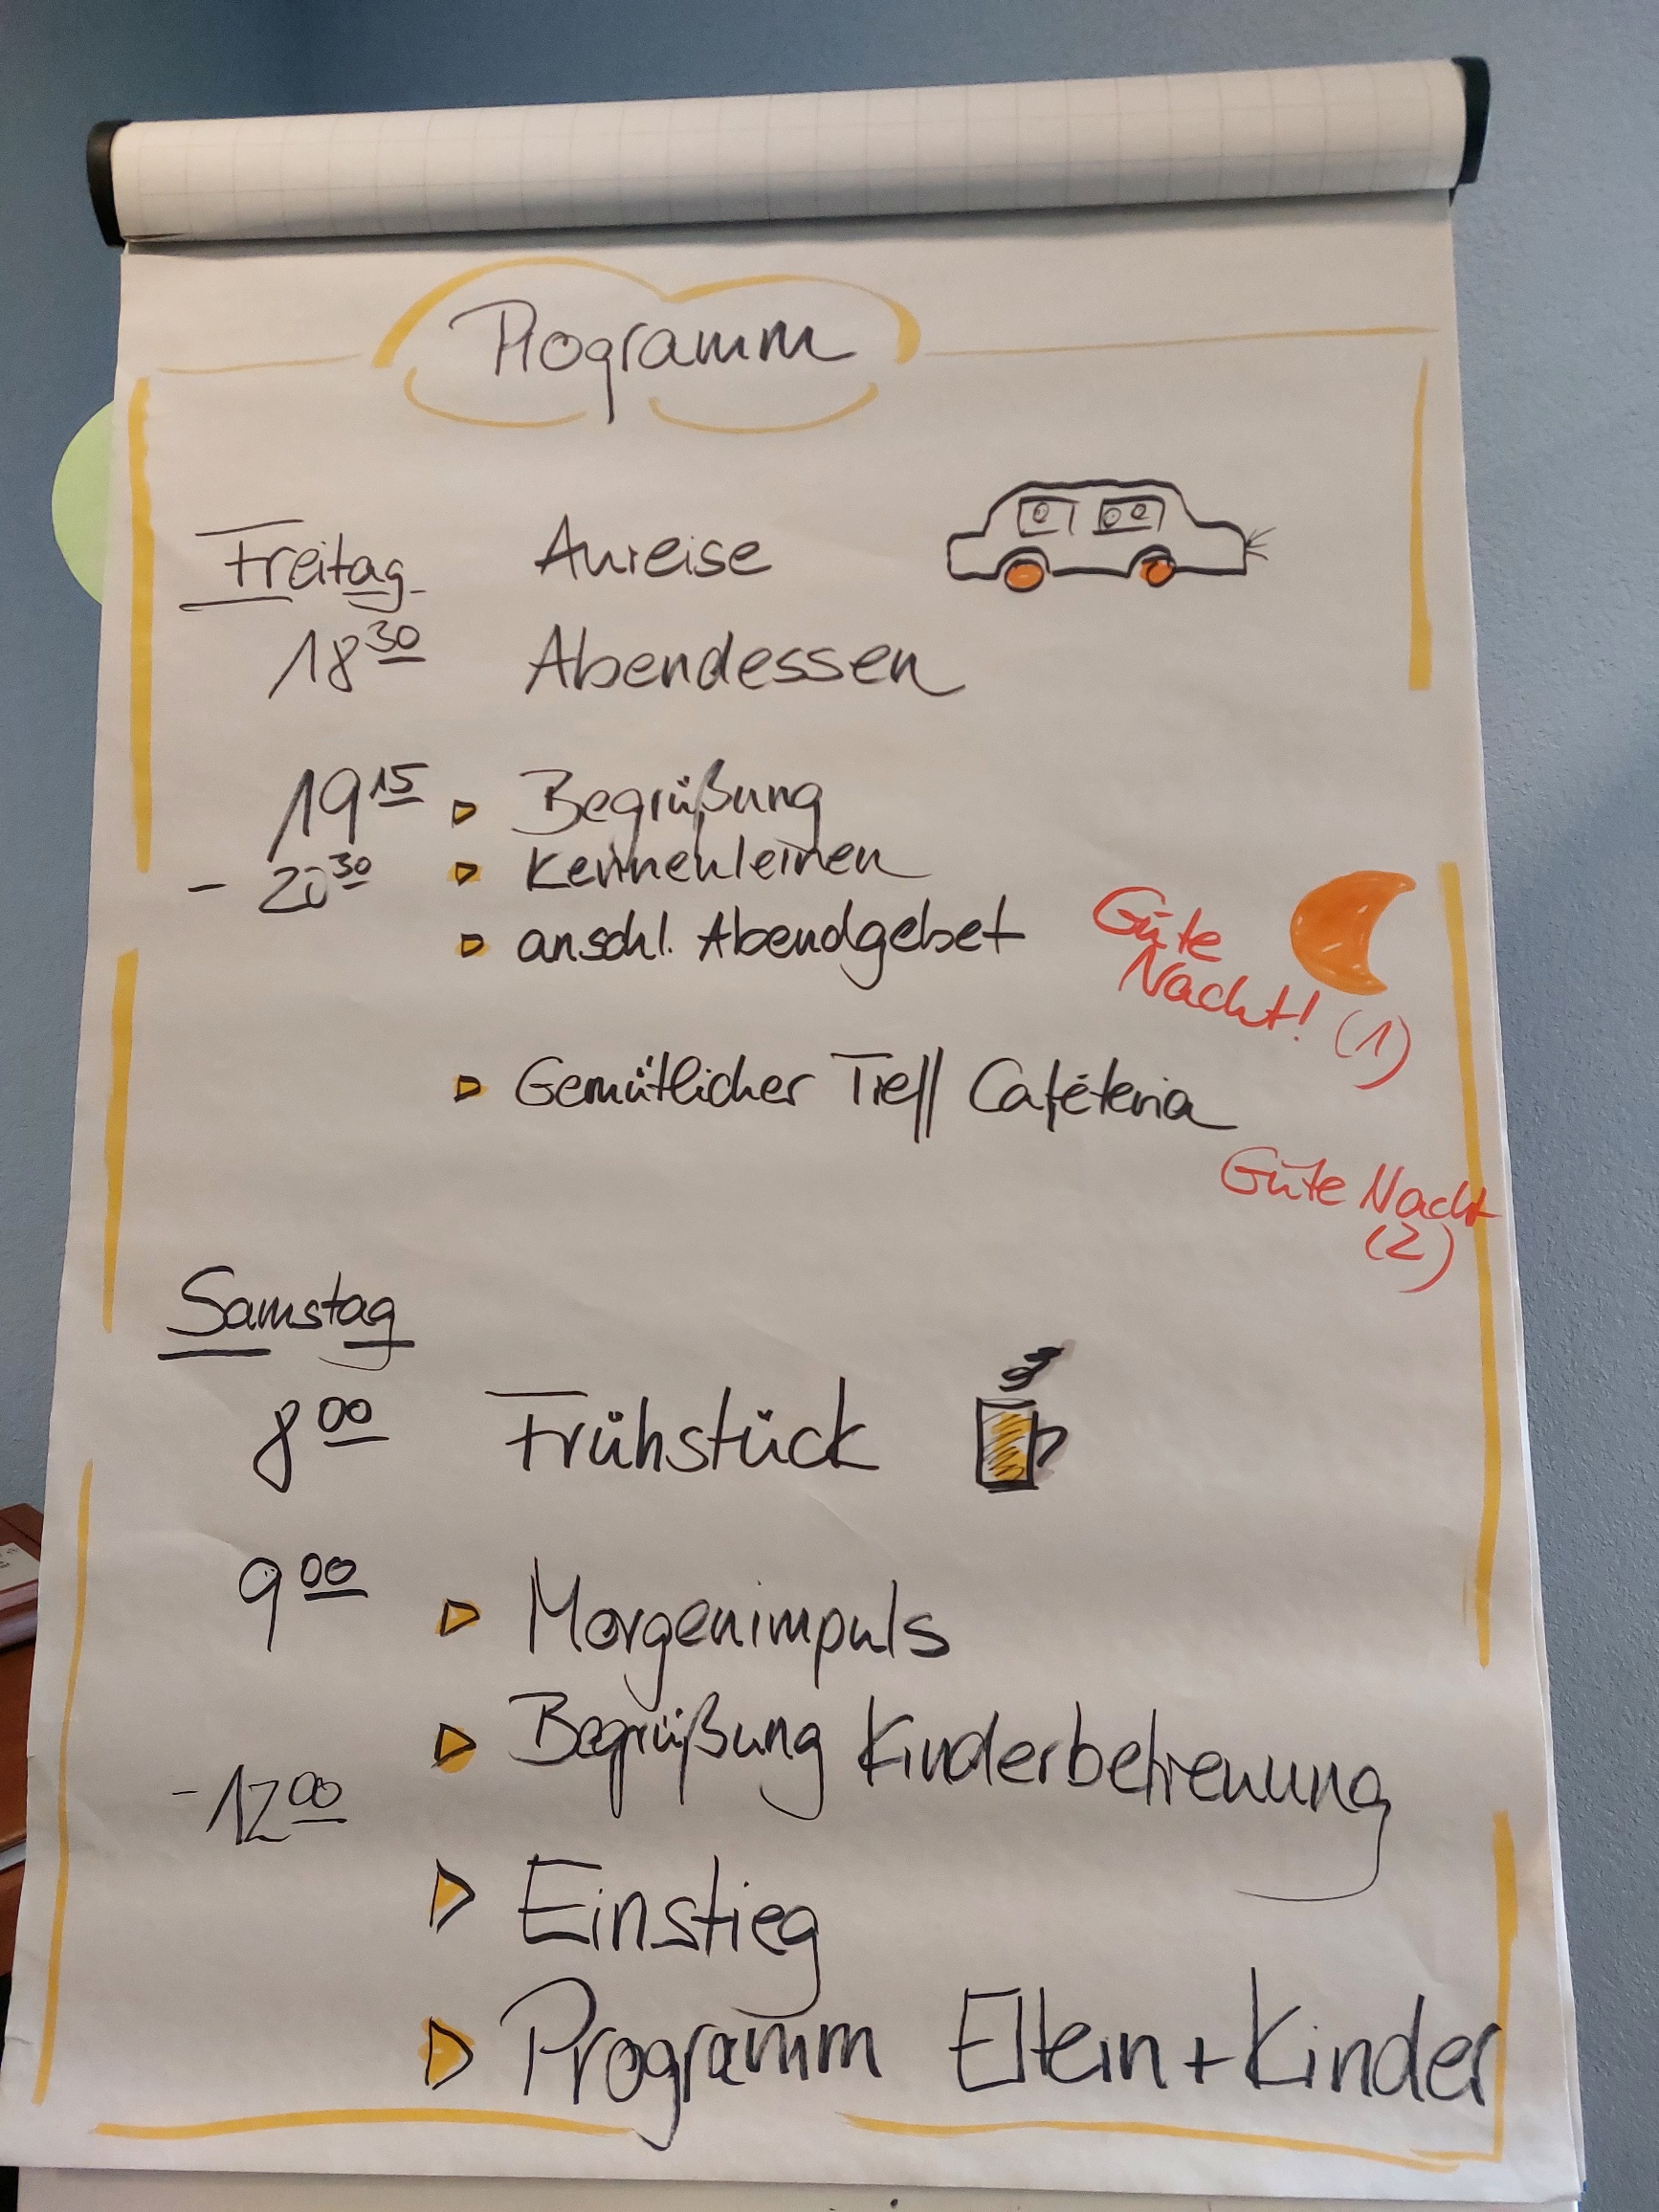 Programm
Freitag Anreise
18 30 Abendessen
19 15 Begrüßung
- 20 30 Kennenlernen
anschl. Abendgebet
Gute
Nacht! (1)
Gemütlicher Treff Caféteria
Gute Nacht
(2)
Samstag
8 00 Frühstück
9 00 Morgenimpuls
Begrüßung Kinderbetreuung
- 12 00
Einstieg
Programm Eltern + Kinder